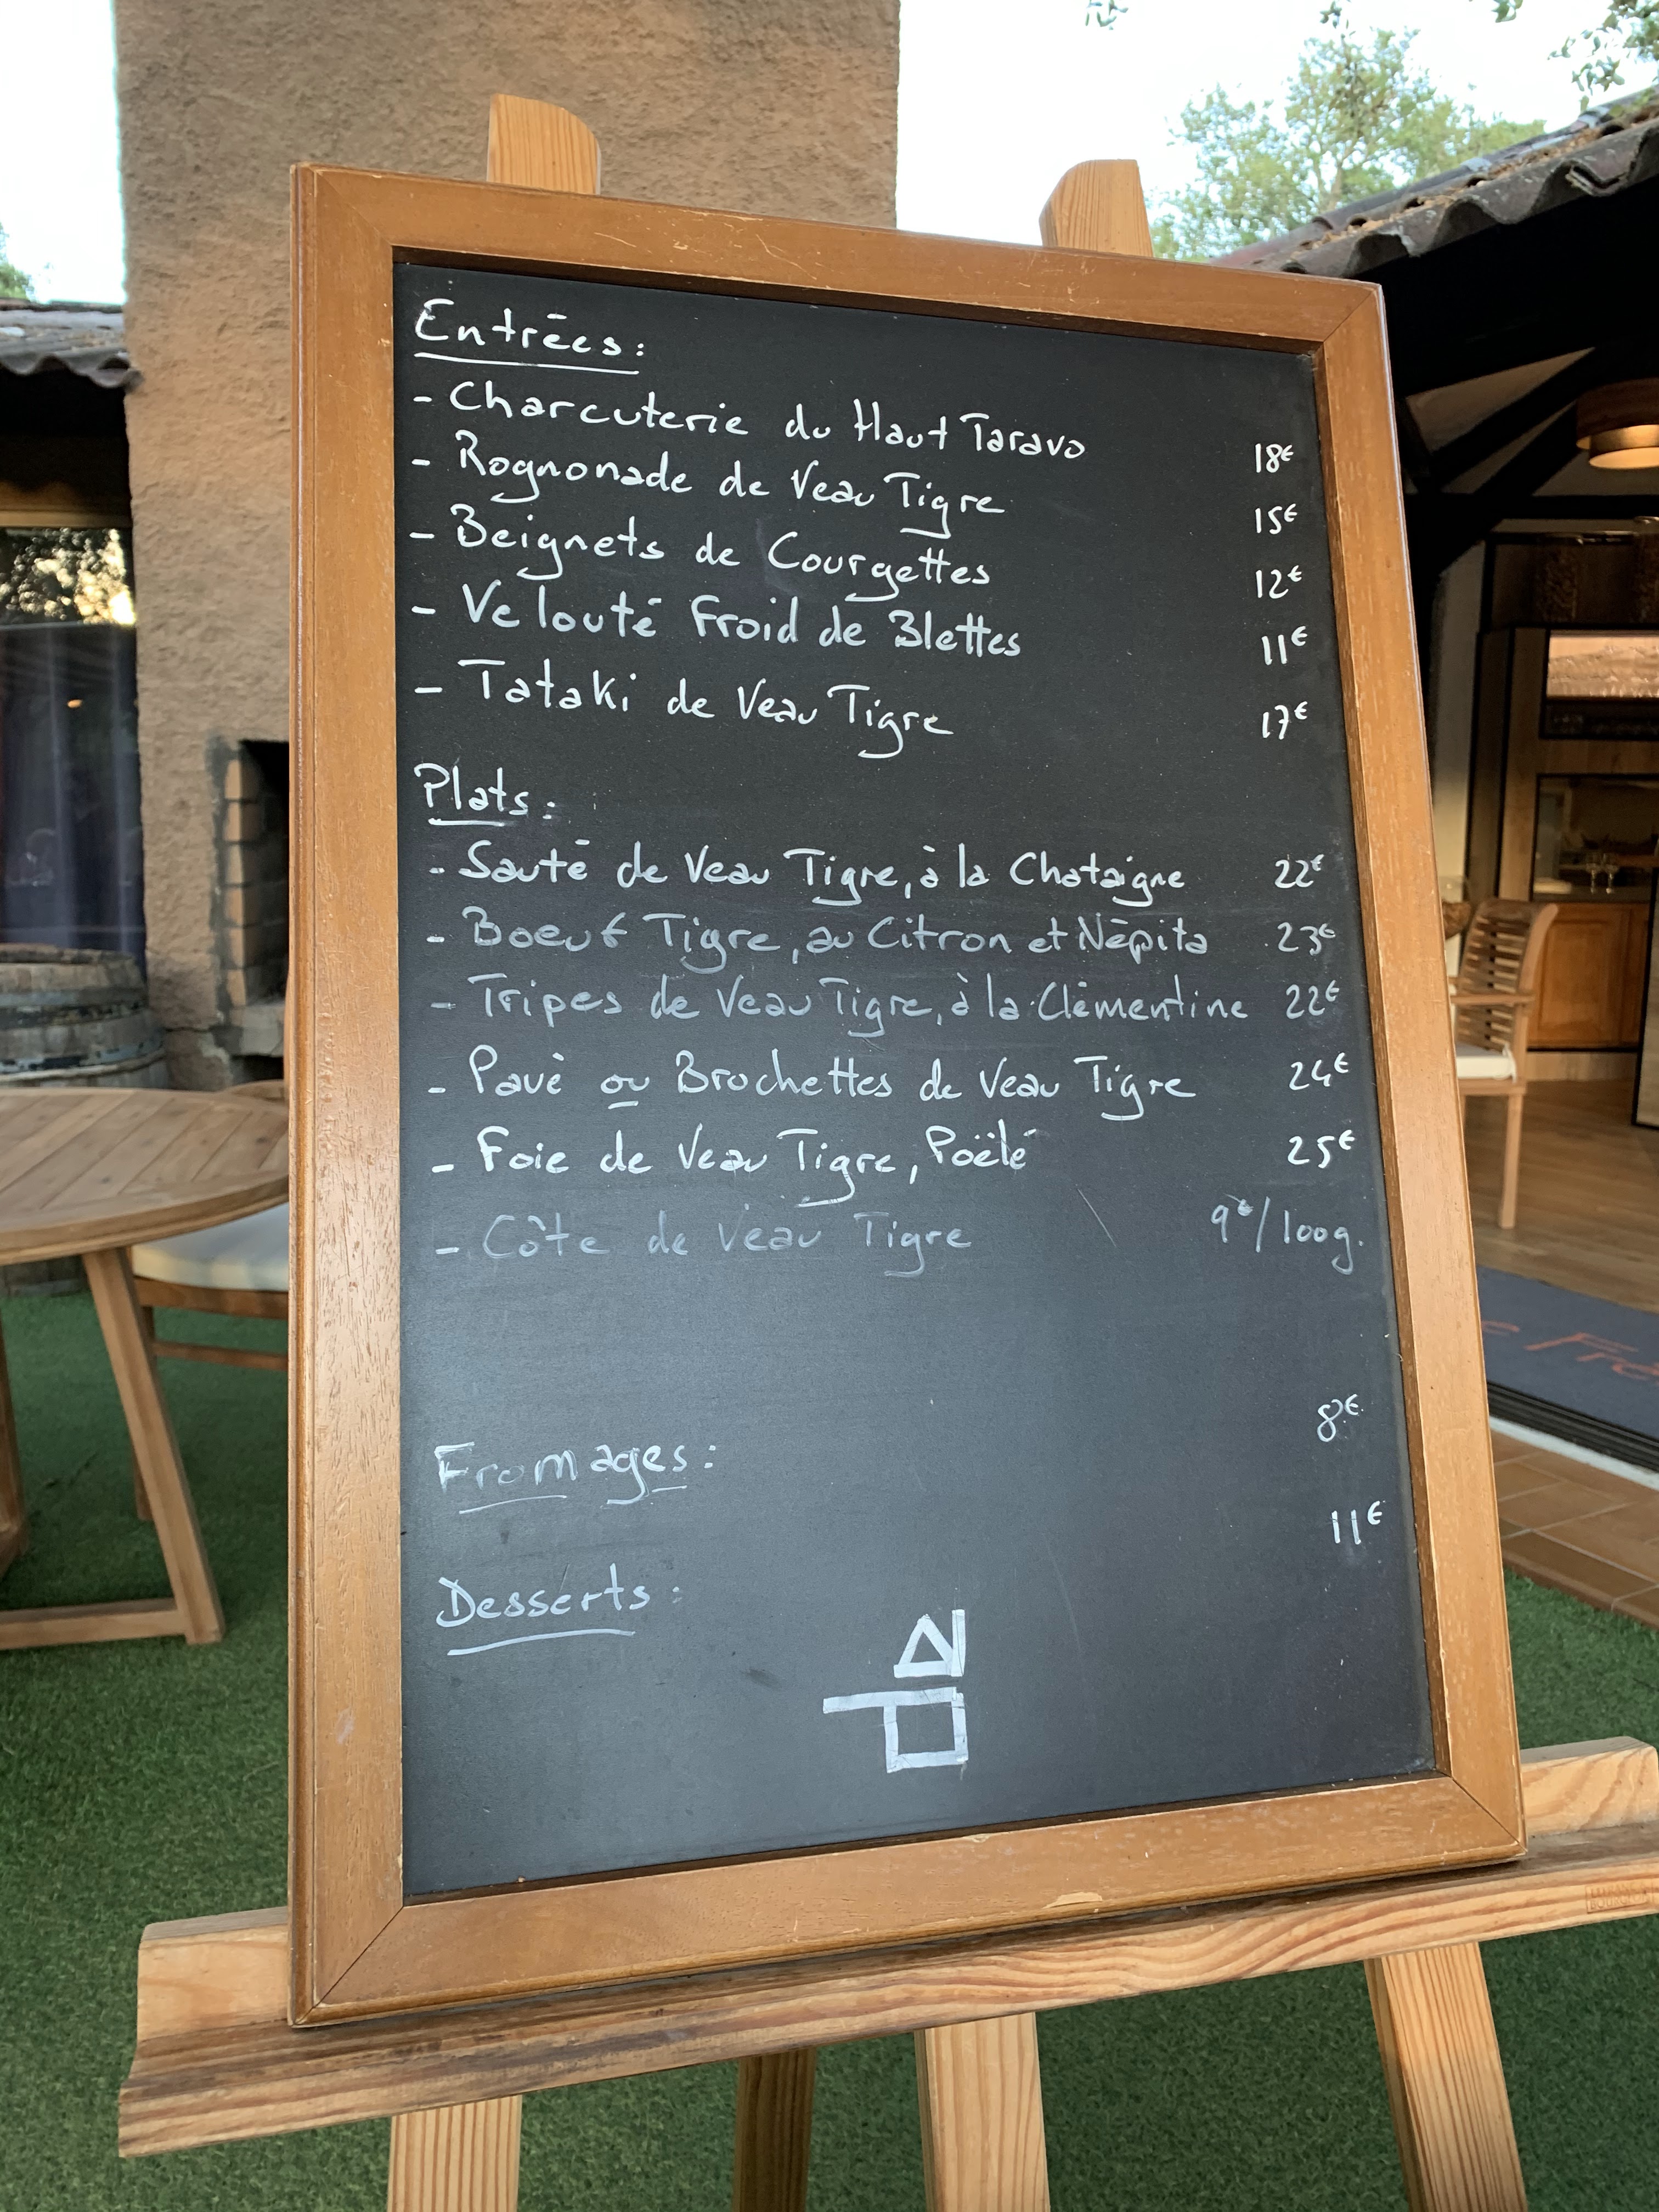 Entrées :
- Charcuterie du Haut Taravo 18€
- Rognonade de Veau Tigre 15€
- Beignets de Courgettes 12€
- Velouté froid de Blettes 11€
- Tataki de Veau Tigre 17€
Plats :
- Sauté de Veau Tigre, à la Chataigne 22€
- Boeuf Tigre, au Citron et Népita 23€
- Tripes de Veau Tigre, à la Clémentine 22€
- Pavé ou Brochettes de Veau Tigre 24€
- Foie de Veau Tigre, Poëlé 25€
- Côte de Veau Tigre 9€/100g.
Fromages : 8€
Desserts : 11€